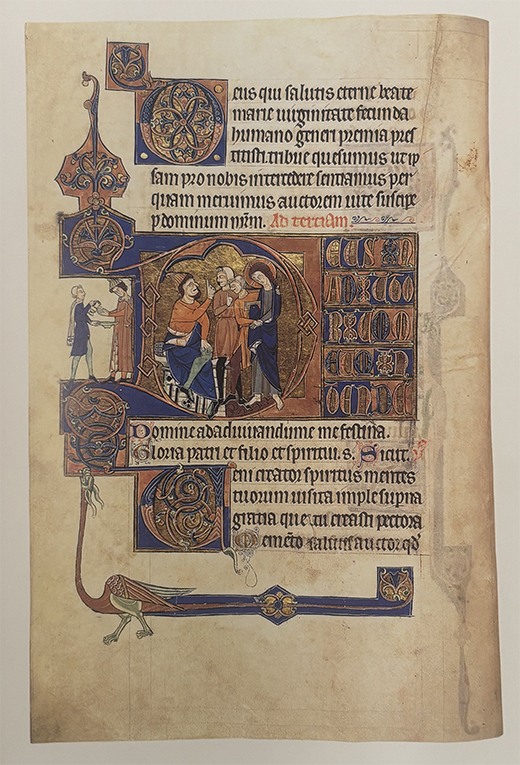 Deus qui salutis eterne beate
marie uirginitate fecunda
humano generi premia pres
titisti. tribue quesumus ut ip
sam pro nobis intercedere sentiamus per
quam meruimus auctorem uite suscipe
p dominum nr̃m. Ad tertiam.
DEUS IN
ADIUTO
RIUM M
EUM IN
TENDE
Domine ad adiuuandum me festina.
Gloria patri et filio et spiritui. s. Sicut.
Veni creator spiritus mentes
tuorum uisita imple supna
gratia que tu creasti pectora
Memẽto salutis auctor qd